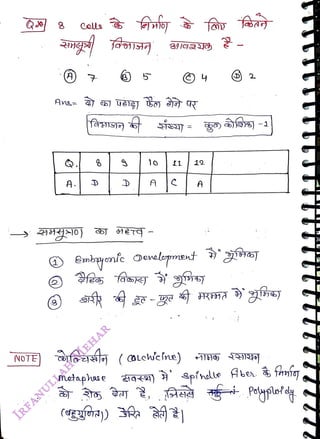 Q.26) 8 Cells के निर्माण के लिए कितने
समसूत्री विभाजन आवश्यक है -
(A) 7 (B) 5 (C) 4 (D) 2
Ans= दो का पहाड़ा फैल होने पर
विभाजन की संख्या = कुल कोशिका -1
Q. 8 9 10 11 12
A. D D A C A
→ समसूत्रण का महत्व -
① Embryonic Development में भूमिका
② लैंगिक विकास में भूमिका
③ शरीर की टूट-फूट की मरम्मत में भूमिका
NOTE कोल्चिसीन (Colchicine) नामक रसायन
metaphase अवस्था में Spindle Fiber के निर्माण
को रोक देता है, जिससे Polyploidy
(बहुगुणिता) प्रेरित होती है।
IRFANULLAH MEHAR